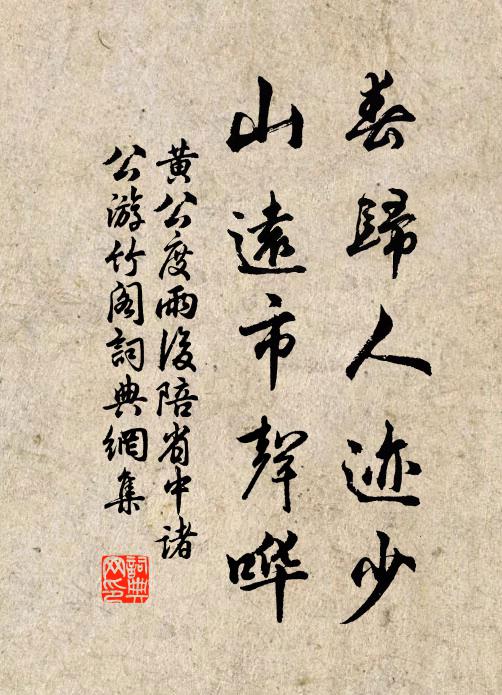 春歸人迹少
山遠市聲哗
黃公度雨後陪省中諸
公游竹閣詞典網集
詞典
网印